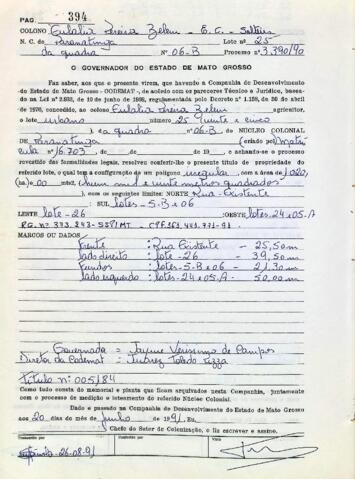 PAG. 394
COLONO Eulalia Areia Belem - E. C. - Solteira
N. C. de Paranatinga Lote nº 25
da quadra Nº 06-B Processo nº 3.390/90
O GOVERNADOR DO ESTADO DE MATO GROSSO
Faz saber, aos que o presente virem, que havendo a Companhia de Desenvolvimento
do Estado de Mato Grosso - CODEMAT -, de acôrdo com os pareceres Técnico e Jurídico, baseada
na Lei nº 2.838, de 10 de junho de 1966, regulamentada pelo Decreto nº 1.138, de 30 de abril
de 1970, concedido, ao colono Eulalia Areia Belem
o lote urbano nº 25 (vinte e cinco
) da quadra nº 06-B do NÚCLEO COLONIAL
DE Paranatinga (criado por Matri
cula nº 16.703 de de de 19 , e achando-se o processo
revestido das formalidades legais, resolveu conferir-lhe o presente título de propriedade do
referido lote, o qual tem a configuração de um polígono irregular, com a área de 1.020,
00 mts2, (hum mil e vinte metros quadrados
), com os seguintes limites: NORTE Rua-Existente
SUL lotes-5-B e 06
LESTE lote-26 OESTE lotes-24 e 05-A
MARCOS OU DADOS
Frente : Rua Existente - 25,50m
lado direito : lote-26 - 39,50m
Fundos : lotes-5-B e 06 - 21,30m
lado esquerdo : lotes-24 e 05-A - 50,00m
Governador = Jayme Verissimo de Campos
Diretor da Codemat =
Título nº 005184
Como tudo consta do memorial e planta que ficam arquivados nesta Companhia, juntamente
com o processo de medição e loteamento do referido Núcleo Colonial.
Dado e passado na Companhia de Desenvolvimento do Estado de Mato Grosso
aos 20 dias do mês de junho de 1991. Eu,
Chefe do Setor de Colonização, o fiz escrever e assino.
26-08-91